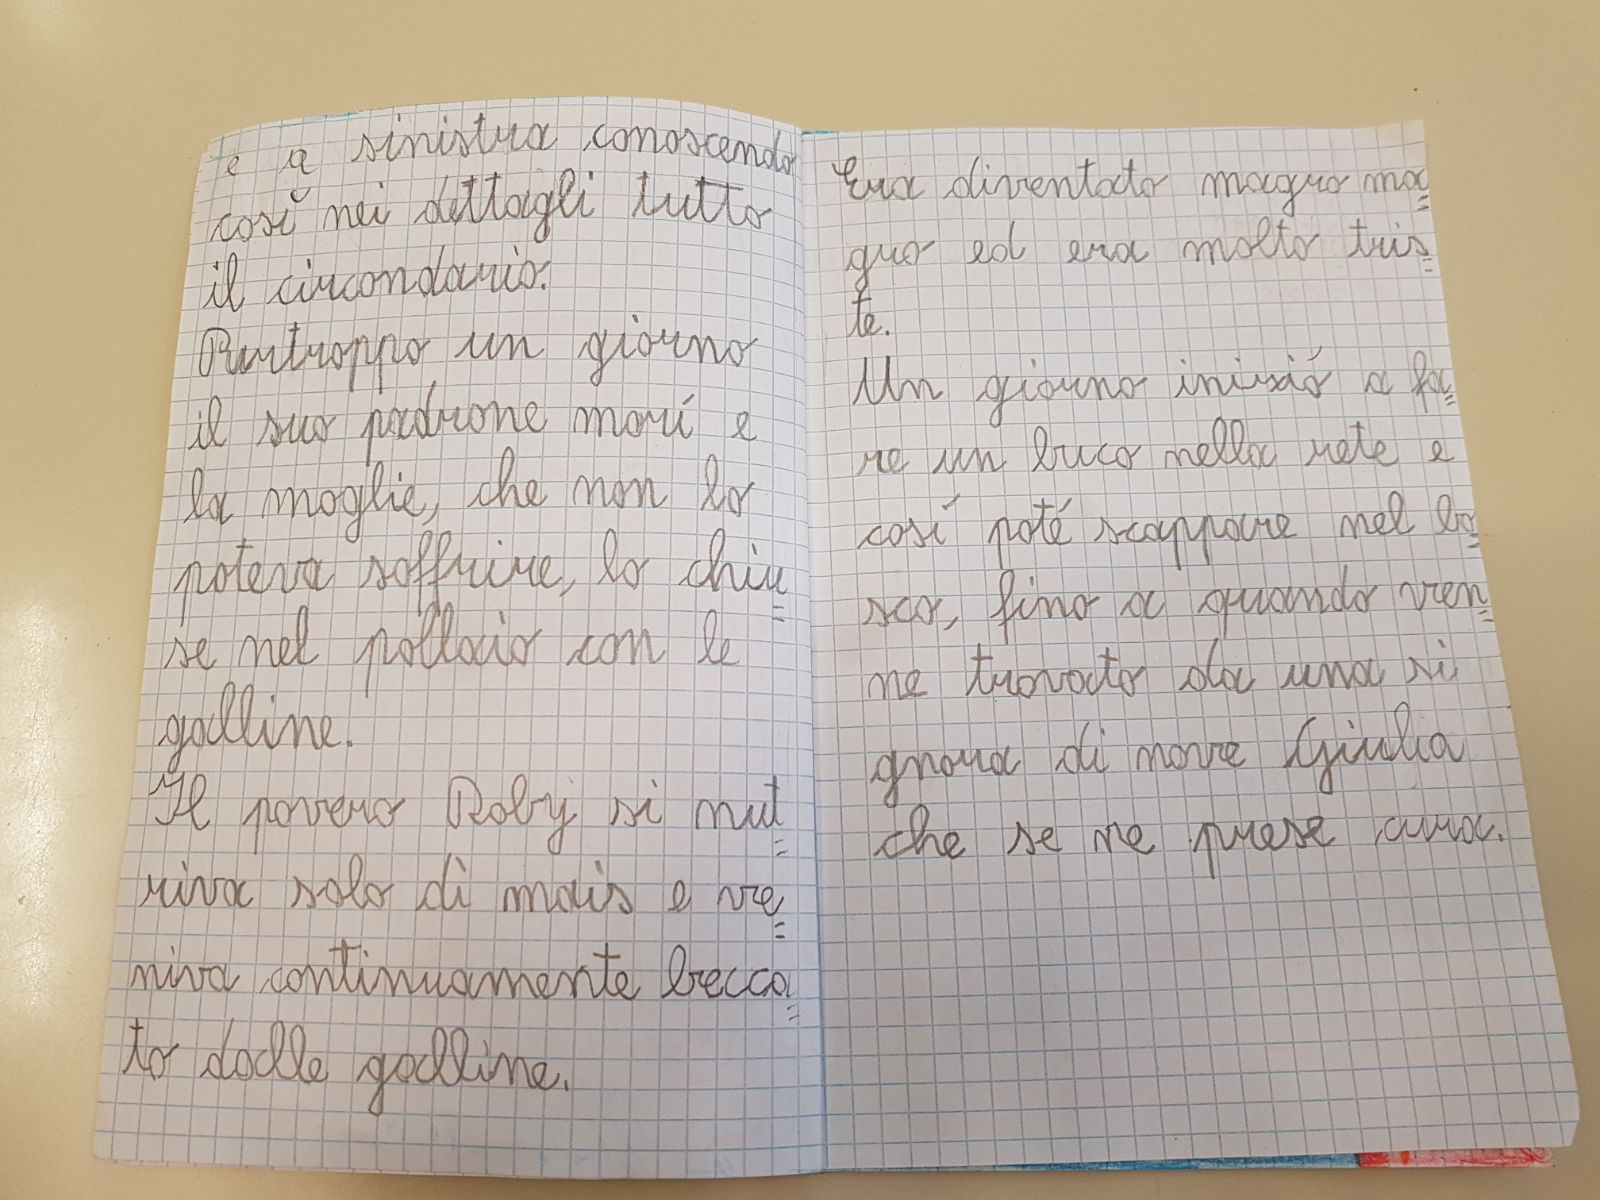 e a sinistra conoscendo
così nei dettagli tutto
il circondario.
Purtroppo un giorno
il suo padrone morí e
la moglie, che non lo
poteva soffrire, lo chiu=
se nel pollaio con le
galline.
Il povero Roby si nut=
riva solo di mais e ve=
niva continuamente becca=
to dalle galline.
Era diventato magro ma=
gro ed era molto tris=
te.
Un giorno inizió a fa=
re un buco nella rete e
cosí poté scappare nel bo=
sco, fino a quando ven=
ne trovato da una si
gnora di nove Giulia
che se ne prese cura.